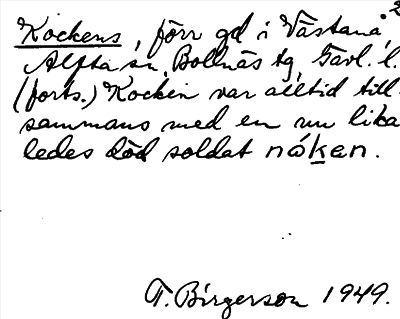 2
Kockens, förr gd i Västanå,
Alfta sn, Bollnäs tg, Gävl. l.
(forts.) Kocken var alltid till-
sammans med en nu lika
ledes död soldat nåken.
T. Birgerson 1949.